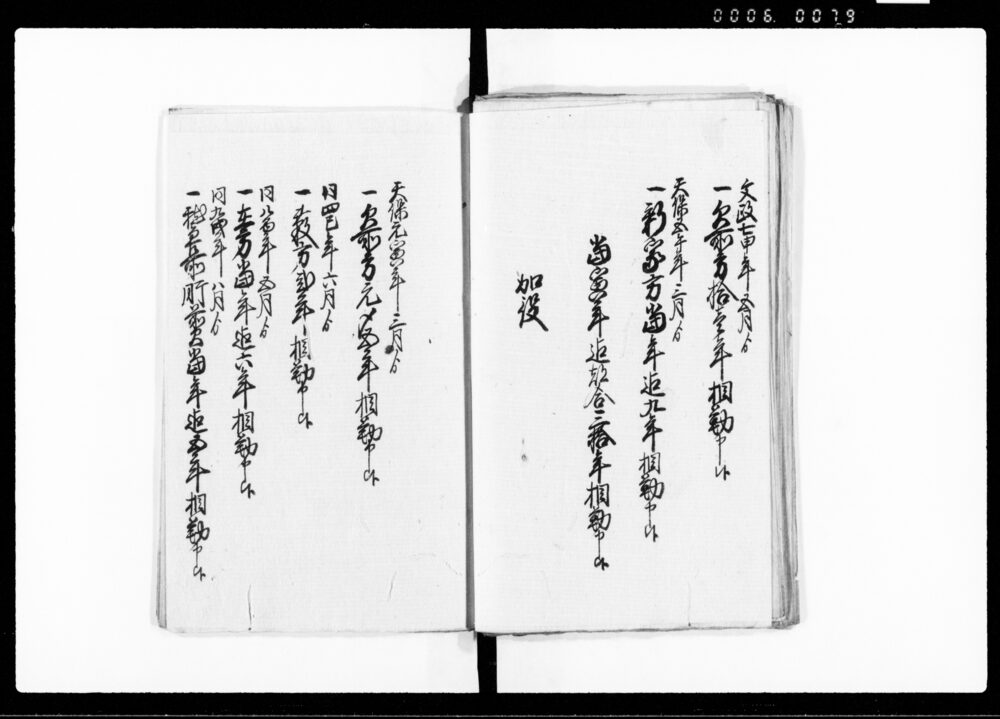 0006 0079
文政七申年五月ゟ
一 前方拾壱年相勤申候
天保五午年三月ゟ
一 新家方当年迄九年相勤申候
当寅年迄都合二拾年相勤申候
加役
天保元寅年三月ゟ
一 前方元〆五年相勤申候
同四巳年六月ゟ
一 方弐年相勤申候
同八酉年五月ゟ
一 方当年迄六年相勤申候
同九戌年八月ゟ
一 前所 当年迄五年相勤申候